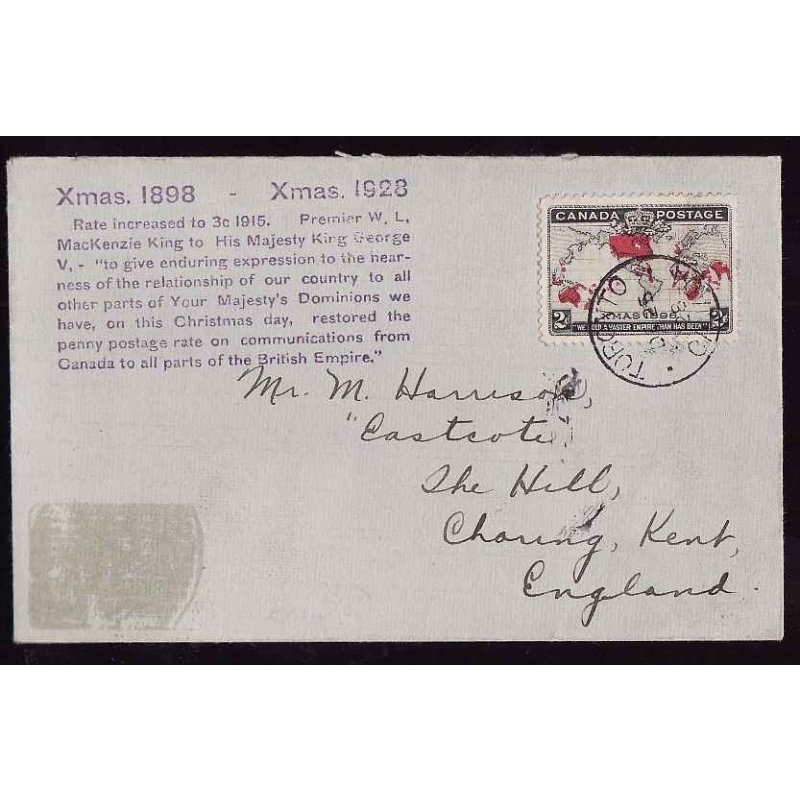 Xmas. 1898 - Xmas. 1928
Rate increased to 3c 1915. Premier W. L,
MacKenzie King to His Majesty King George
V, - "to give enduring expression to the near-
ness of the relationship of our country to all
other parts of Your Majesty's Dominions we
have, on this Christmas day, restored the
penny postage rate on communications from
Canada to all parts of the British Empire."
CANADA POSTAGE
XMAS 1898
2c 2c
"WE HOLD A VASTER EMPIRE THAN HAS BEEN"
TORONTO
25
Mr. M. Harrison,
"Eastcote"
The Hill,
Charing, Kent,
England.